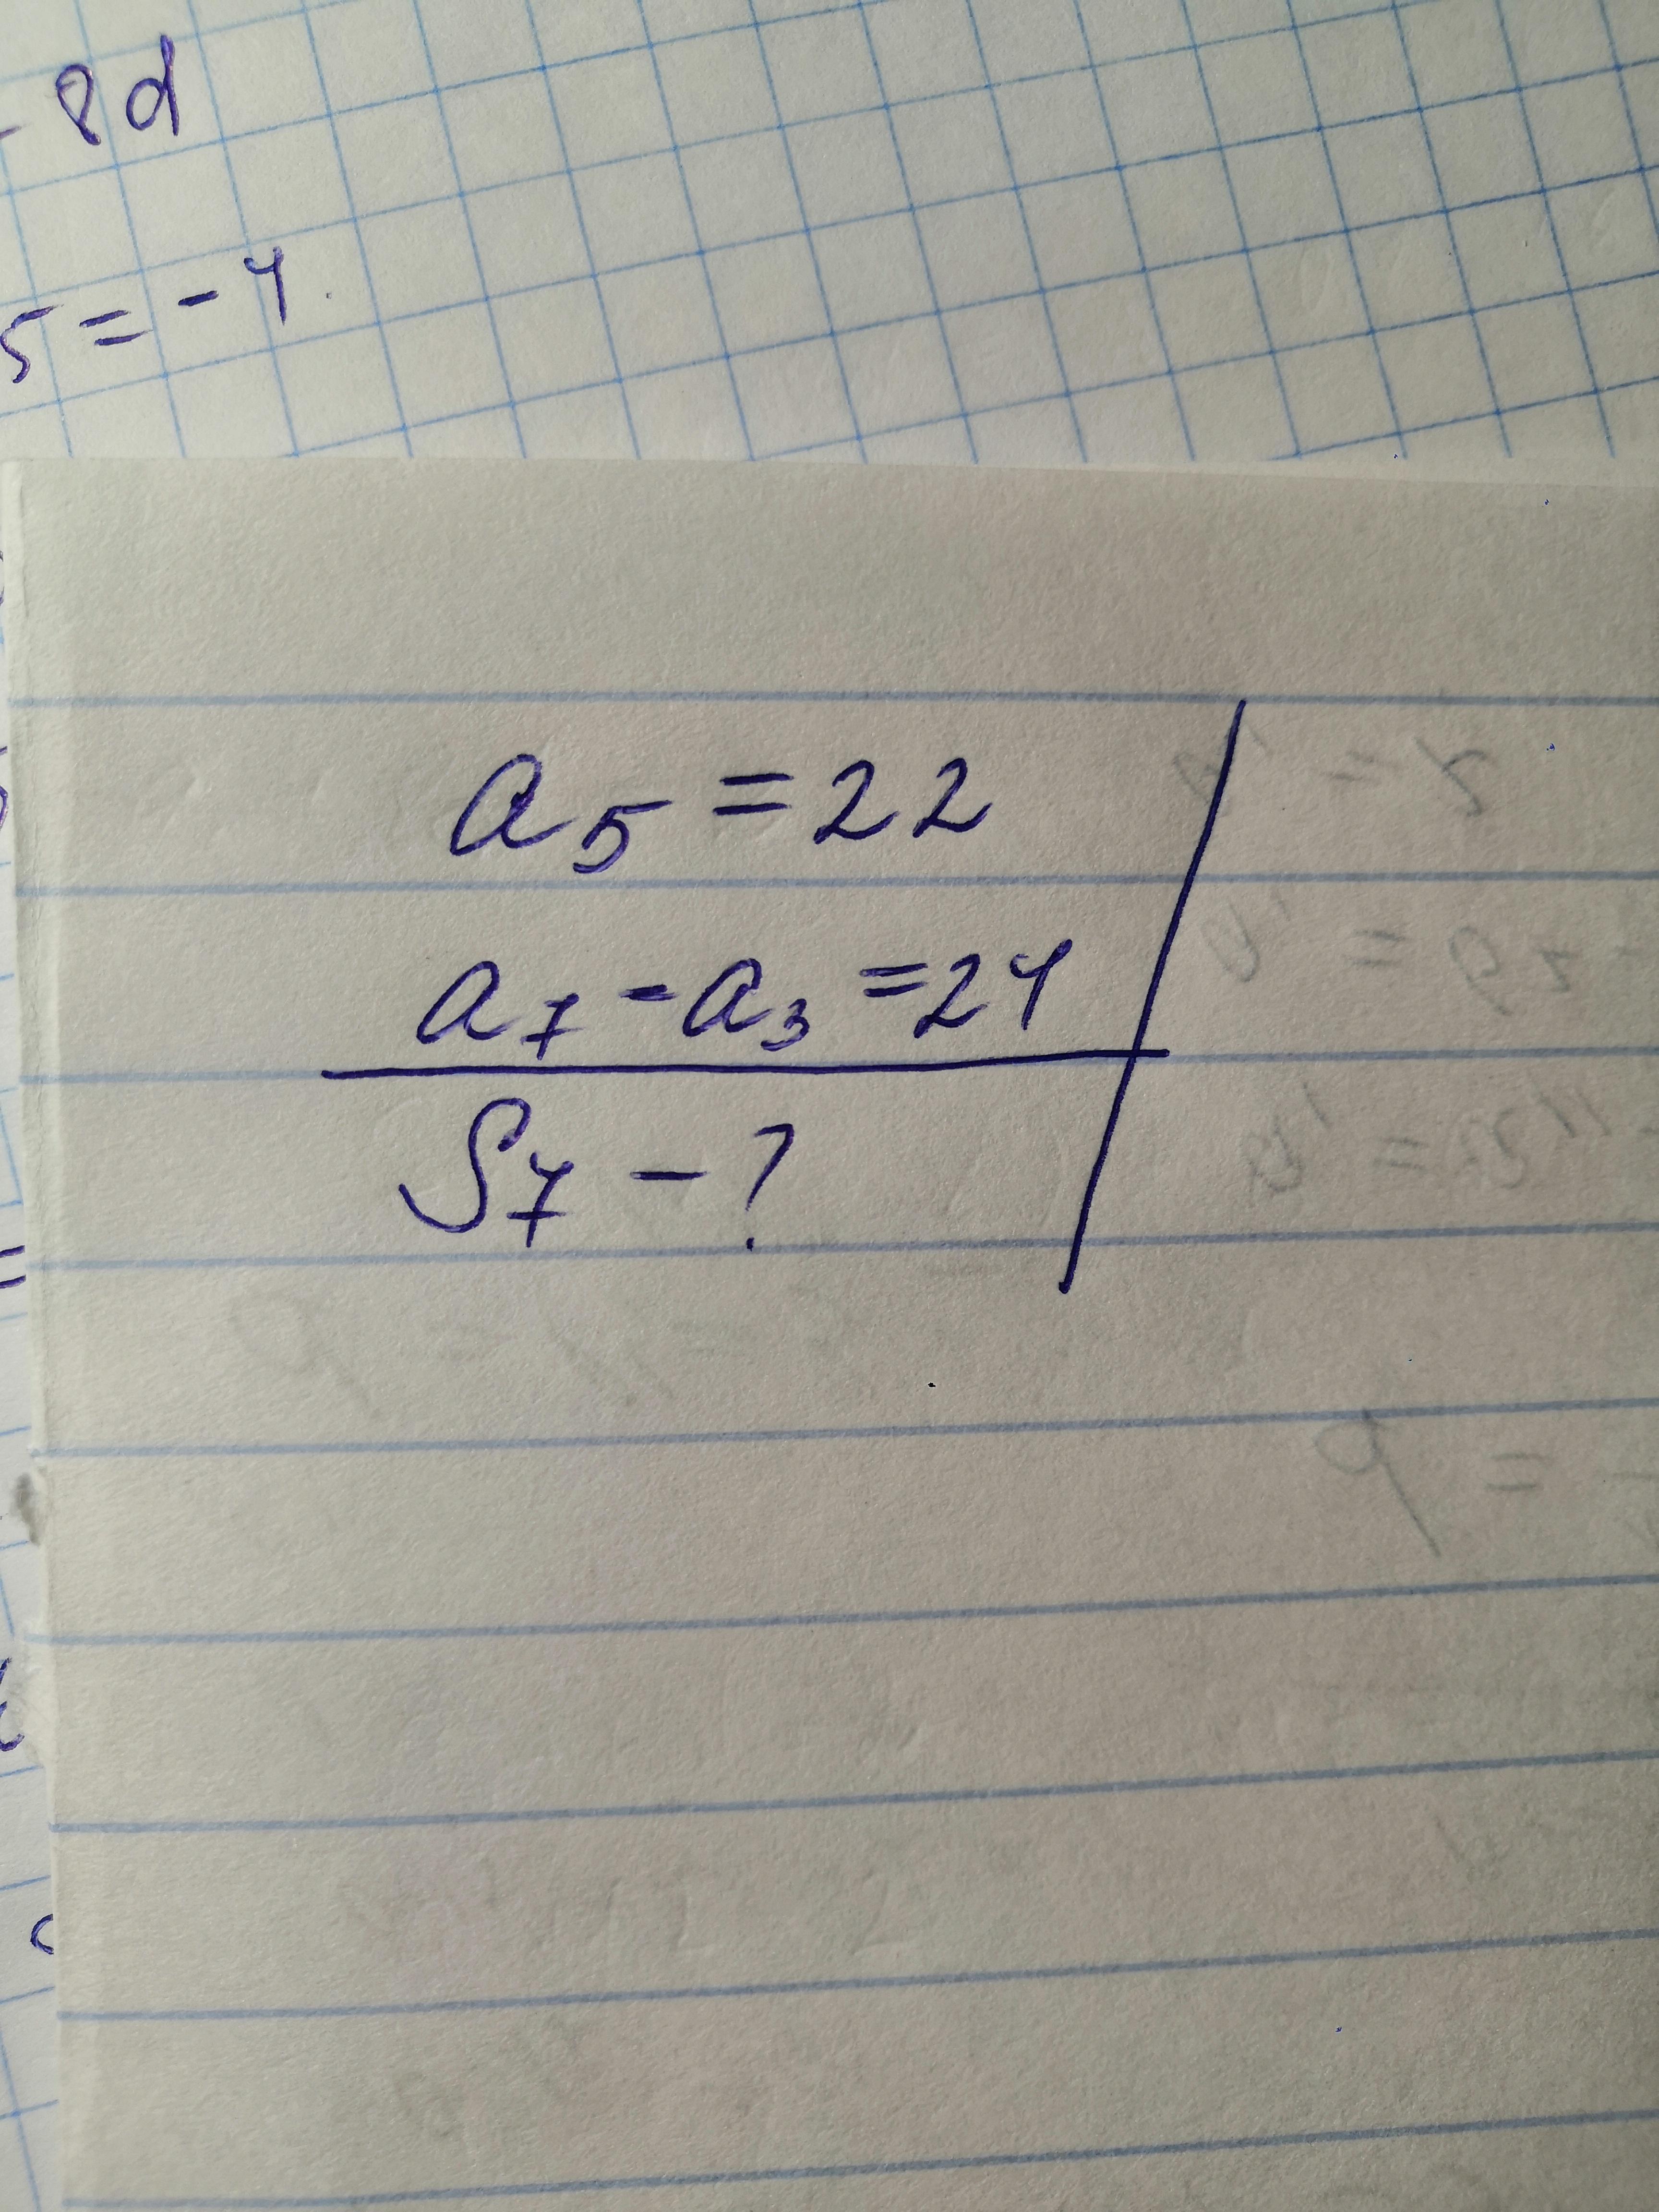 - 8d
5 = -4.
a₅ = 22
a₇ - a₃ = 24
S₇ - ?